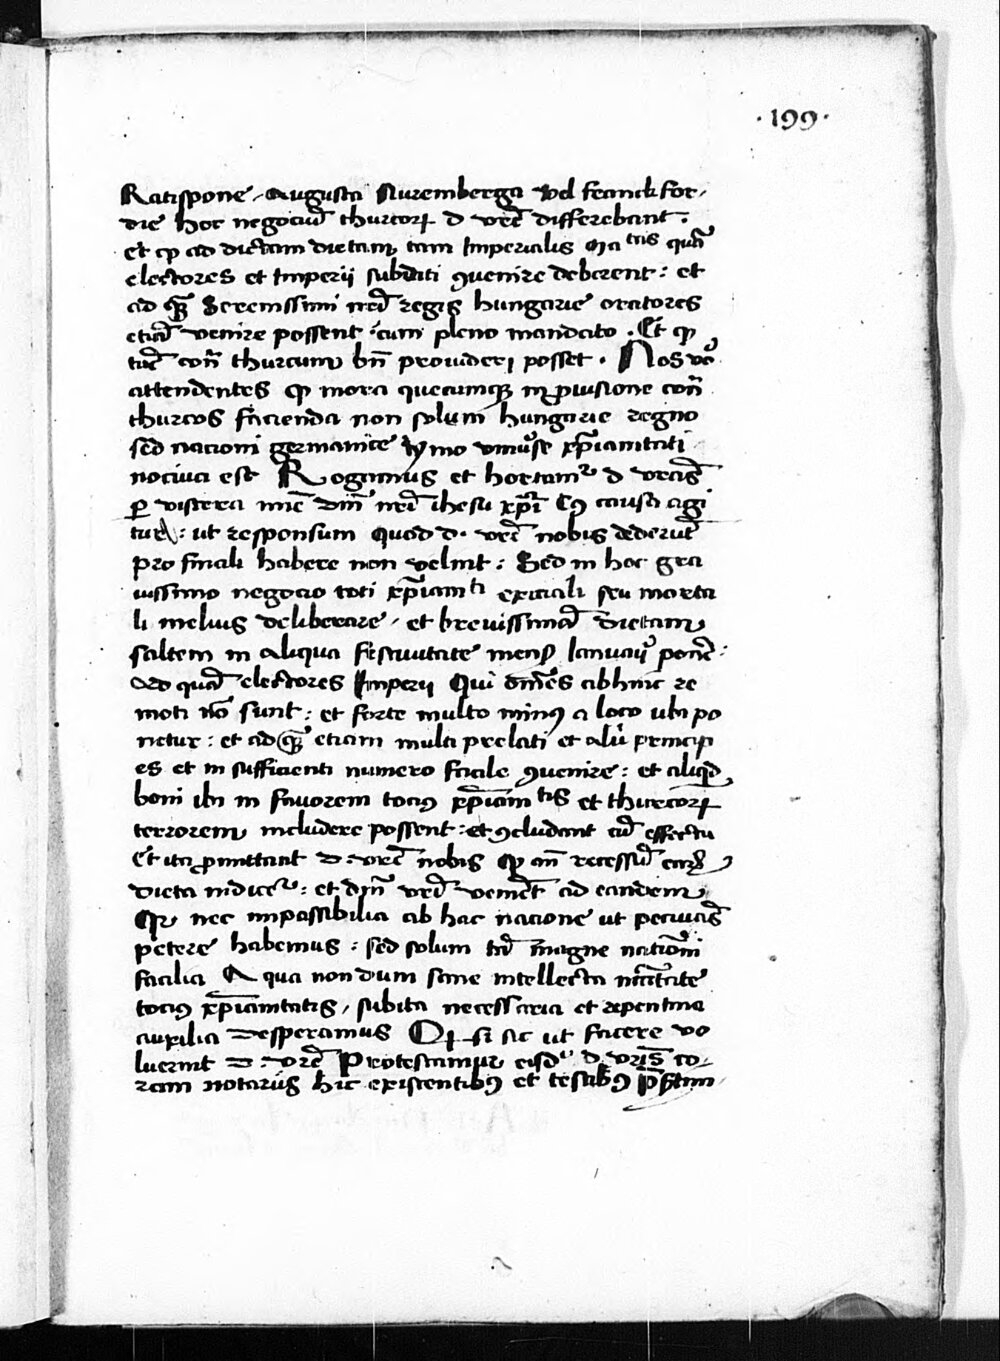 ·199·
Ratispone, Augusta Nuremberga vel franckfor,
die hoc negociū thurcoꝝ d vrē differebant.
et ꝙ ad dictam dietam tam Imperialis Maᵗᵃˢ quā
electores et Imperii subditi ꝯuenire deberent: et
ad quā Serenissimi nrī regis hungarie oratores
etiā venire possent cum pleno mandato. Et ꝙ
tūc conͬ thurcum bn̄ prouideri posset. Nos vͦ
attendentes ꝙ mora quecumqꝫ in ꝓuisione conͬ
thurcos facienda non solum hungarie regno
sed nacioni germanice ymo vniuͬse xp̄ianitati
nociua est Rogamus et hortamͬ d vrās
ꝑ viscera mīe dn̄i nrī ihesu xp̄i Cꝰ causa agi
tur: ut responsum quod d. vrē nobis dederūt
pro finali habere non velint: Sed in hoc gra
uissimo negocio toti xp̄ianᵗⁱ exiciali seu morta
li melius deliberare, et breuissimā dietam
saltem in aliqua festiuitate mens Ianuarii ponē:
Ad quā electores Imperii Qui om̄es abhinc re
moti nō sunt: et forte multo minꝰ a loco ubi po
netur: et ad quā etiam multi prelati et alii princip
es et in sufficienti numero facile ꝯuenire: et aliqͥd
boni ibi in fauorem tociꝰ xp̄ianᵗⁱˢ et thurcoꝝ
terrorem includere possent: et ꝯcludant cū effectu
Et ita ꝓmittant d. vrē nobis ꝙ an̄ recessū eaꝝ
dieta indicetͬ: et dn̄i vrī veniēt ad eandem
Qꝛ nec impossibilia ab hac nacione ut peruicās
petere habemus: sed solum tā magne nationi
facilia A qua nondum sane intellecta nc̄citate
tociꝰ xp̄ianitatis, subita necessaria et repentina
auxilia desperamus Qꝫ si sic ut facere vo
luerint d. vrē Protestamur eisdͫ d. vrīs co,
ram notariis hic existentibꝰ et testibꝰ pn̄tim